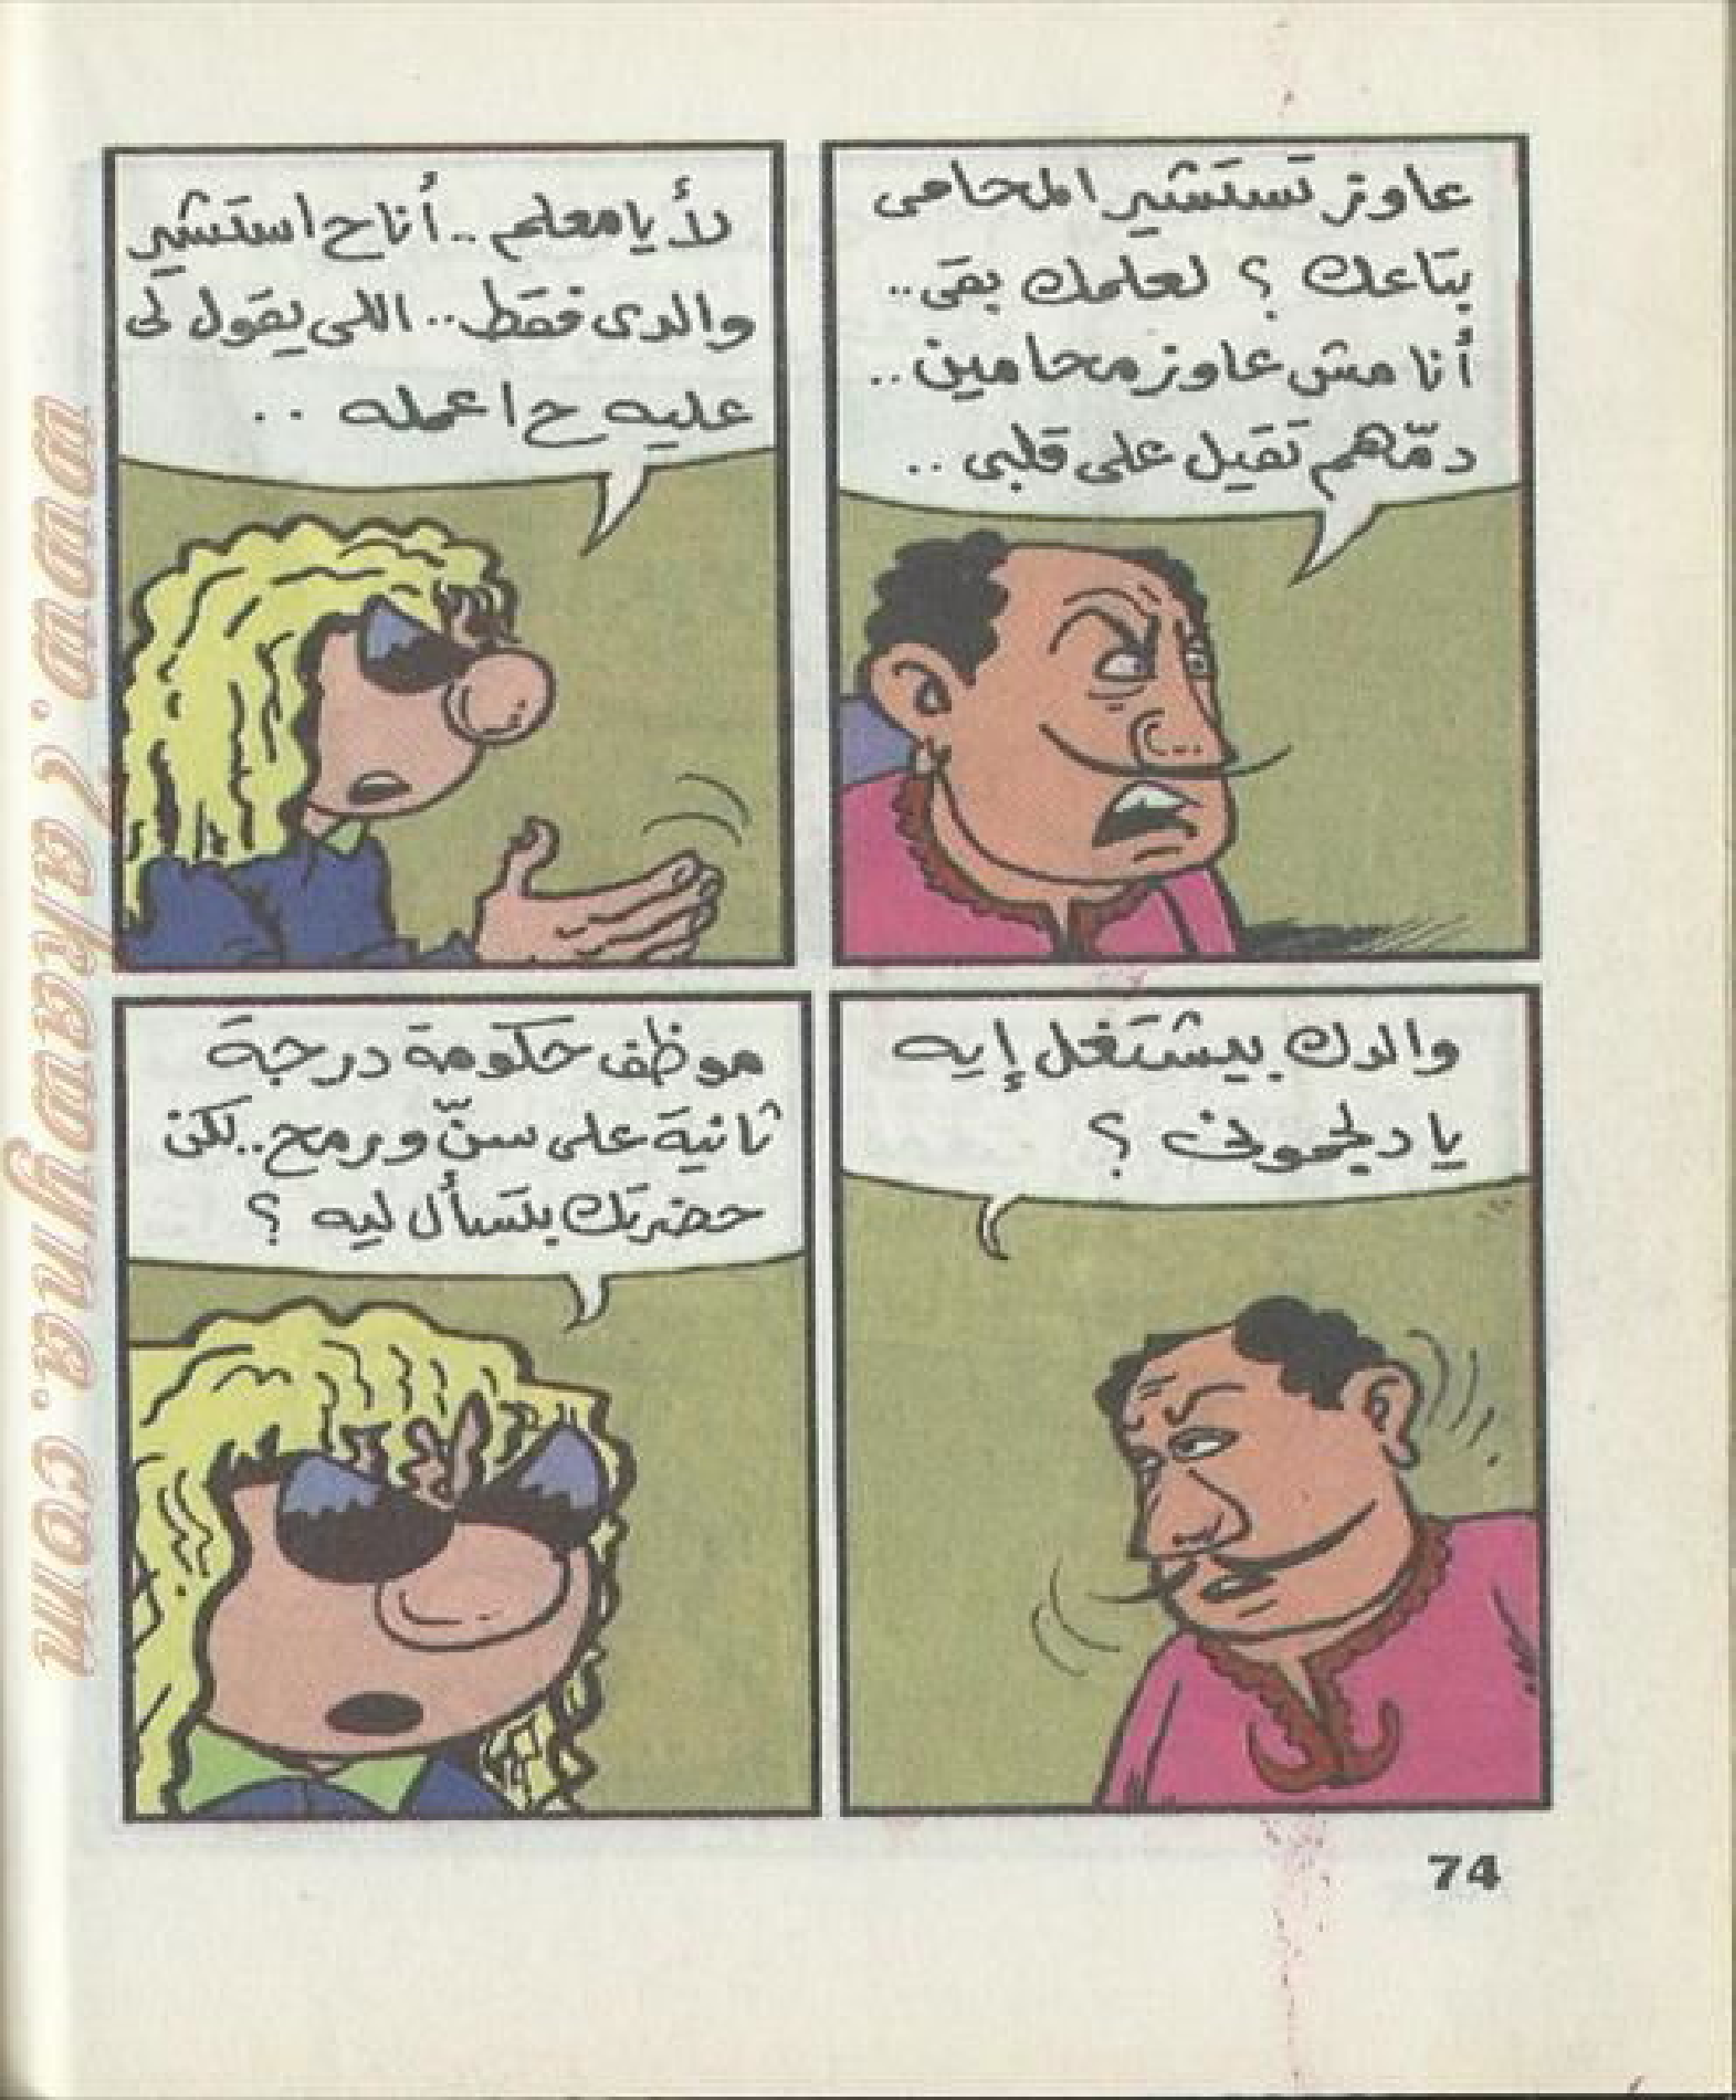 عاوز تستشير المحامى
بتاعك ؟ لعلمك بقى..
أنا مش عاوز محامين..
دمّهم تقيل على قلبى ..
لأ يا معلم .. أنا ح استشير
والدى فقط .. اللى يقول لى
عليه ح اعمله ..
والدك بيشتغل إيه
يا دلجمونى ؟
موظف حكومة درجة
ثانية على سنّ ورمح .. لكن
حضرتك بتسأل ليه ؟
74